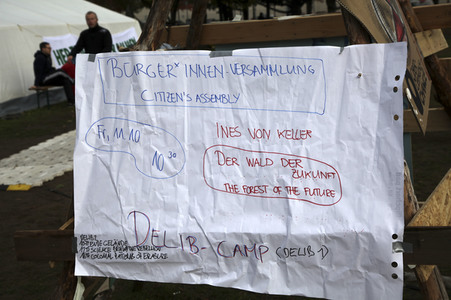 BÜRGER*INNEN-VERSAMMLUNG
CITIZEN'S ASSEMBLY
Fr, 11.10
10 30
INES VON KELLER
DER WALD DER
ZUKUNFT
THE FOREST OF THE FUTURE
DELIB-CAMP (DELIB 1)